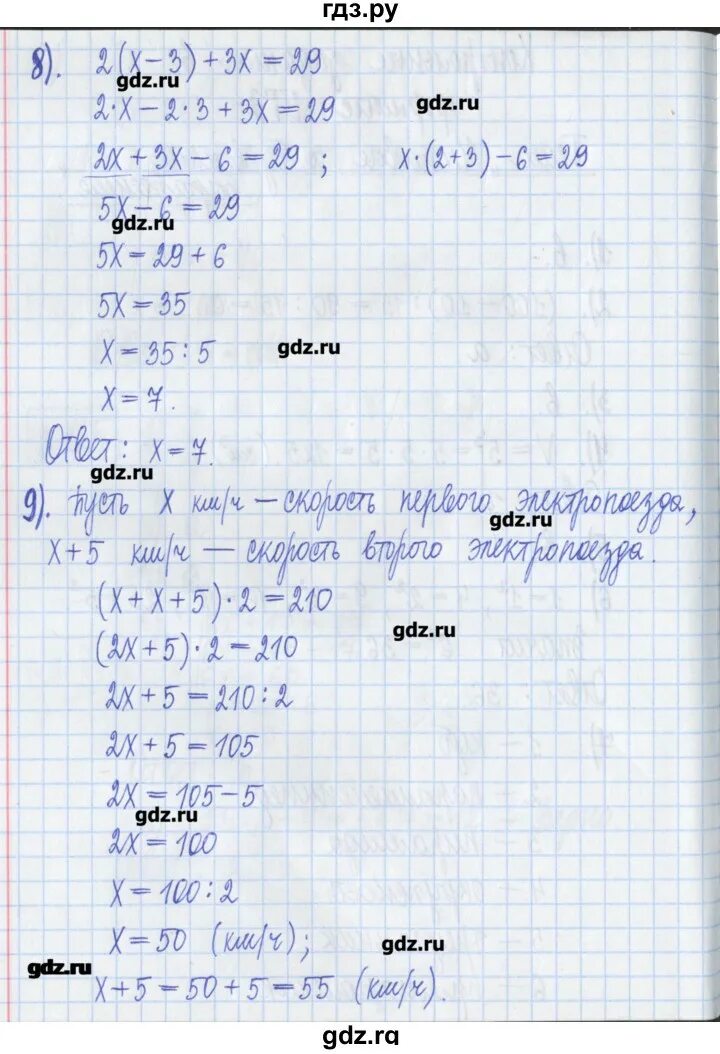 гдз.ру
8). 2(x-3)+3x=29
gdz.ru
2·x-2·3+3x=29
gdz.ru
2x+3x-6=29; x·(2+3)-6=29
5x-6=29
gdz.ru
5x=29+6
5x=35
x=35:5
gdz.ru
x=7.
Ответ: x=7.
gdz.ru
9). Пусть x км/ч — скорость первого электропоезда,
gdz.ru
x+5 км/ч — скорость второго электропоезда.
(x+x+5)·2=210
gdz.ru
(2x+5)·2=210
2x+5=210:2
2x+5=105
2x=105-5
gdz.ru
2x=100
x=100:2
x=50 (км/ч);
gdz.ru
gdz.ru
x+5=50+5=55 (км/ч).
gdz.ru